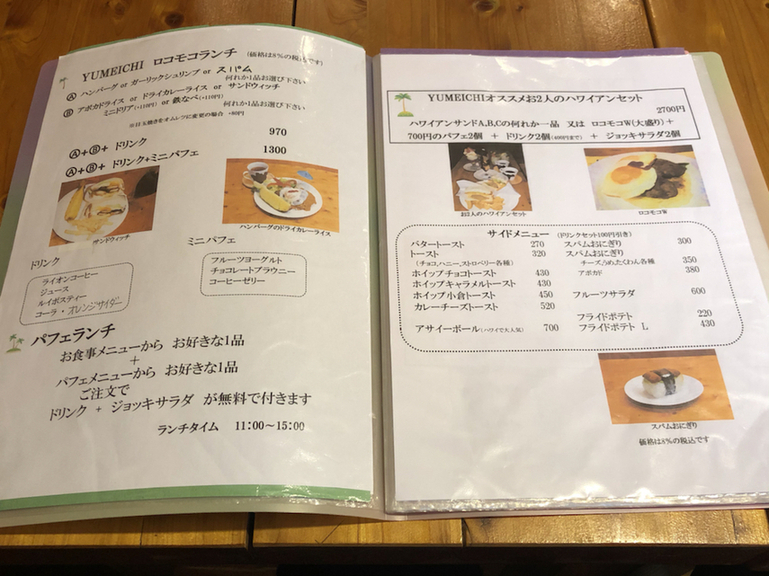 YUMEICHI ロコモコランチ (価格は8%の税込です)
Ⓐ ハンバーグ or ガーリックシュリンプ or スパム
何れか1品お選び下さい
Ⓑ アボカドライス or ドライカレーライス or サンドウィッチ
ミニドリア(+110円) or 鉄なべ(+110円) 何れか1品お選び下さい
※目玉焼きをオムレツに変更の場合 +80円
Ⓐ+Ⓑ+ ドリンク 970
Ⓐ+Ⓑ+ ドリンク+ミニパフェ 1300
サンドウィッチ
ハンバーグのドライカレーライス
ドリンク
ライオンコーヒー
ジュース
ルイボスティー
コーラ・オレンジサイダー
ミニパフェ
フルーツヨーグルト
チョコレートブラウニー
コーヒーゼリー
パフェランチ
お食事メニューから お好きな1品
+
パフェメニューから お好きな1品
ご注文で
ドリンク + ジョッキサラダ が無料で付きます
ランチタイム 11:00~15:00
YUMEICHIオススメお2人のハワイアンセット
2700円
ハワイアンサンドA,B,Cの何れか一品 又は ロコモコW(大盛り)+
700円のパフェ2個 + ドリンク2個(400円まで) + ジョッキサラダ2個
お2人のハワイアンセット
ロコモコW
サイドメニュー (ドリンクセット100円引き)
バタートースト 270
トースト 320
(チョコ,ハニー,ストロベリー各種)
ホイップチョコトースト 430
ホイップキャラメルトースト 430
ホイップ小倉トースト 450
カレーチーズトースト 520
アサイーボール (ハワイで大人気) 700
スパムおにぎり 300
スパムおにぎり
チーズ,うめ,たくわん各種 350
アボカド 380
フルーツサラダ 600
フライドポテト 220
フライドポテト L 430
スパムおにぎり
価格は8%の税込です